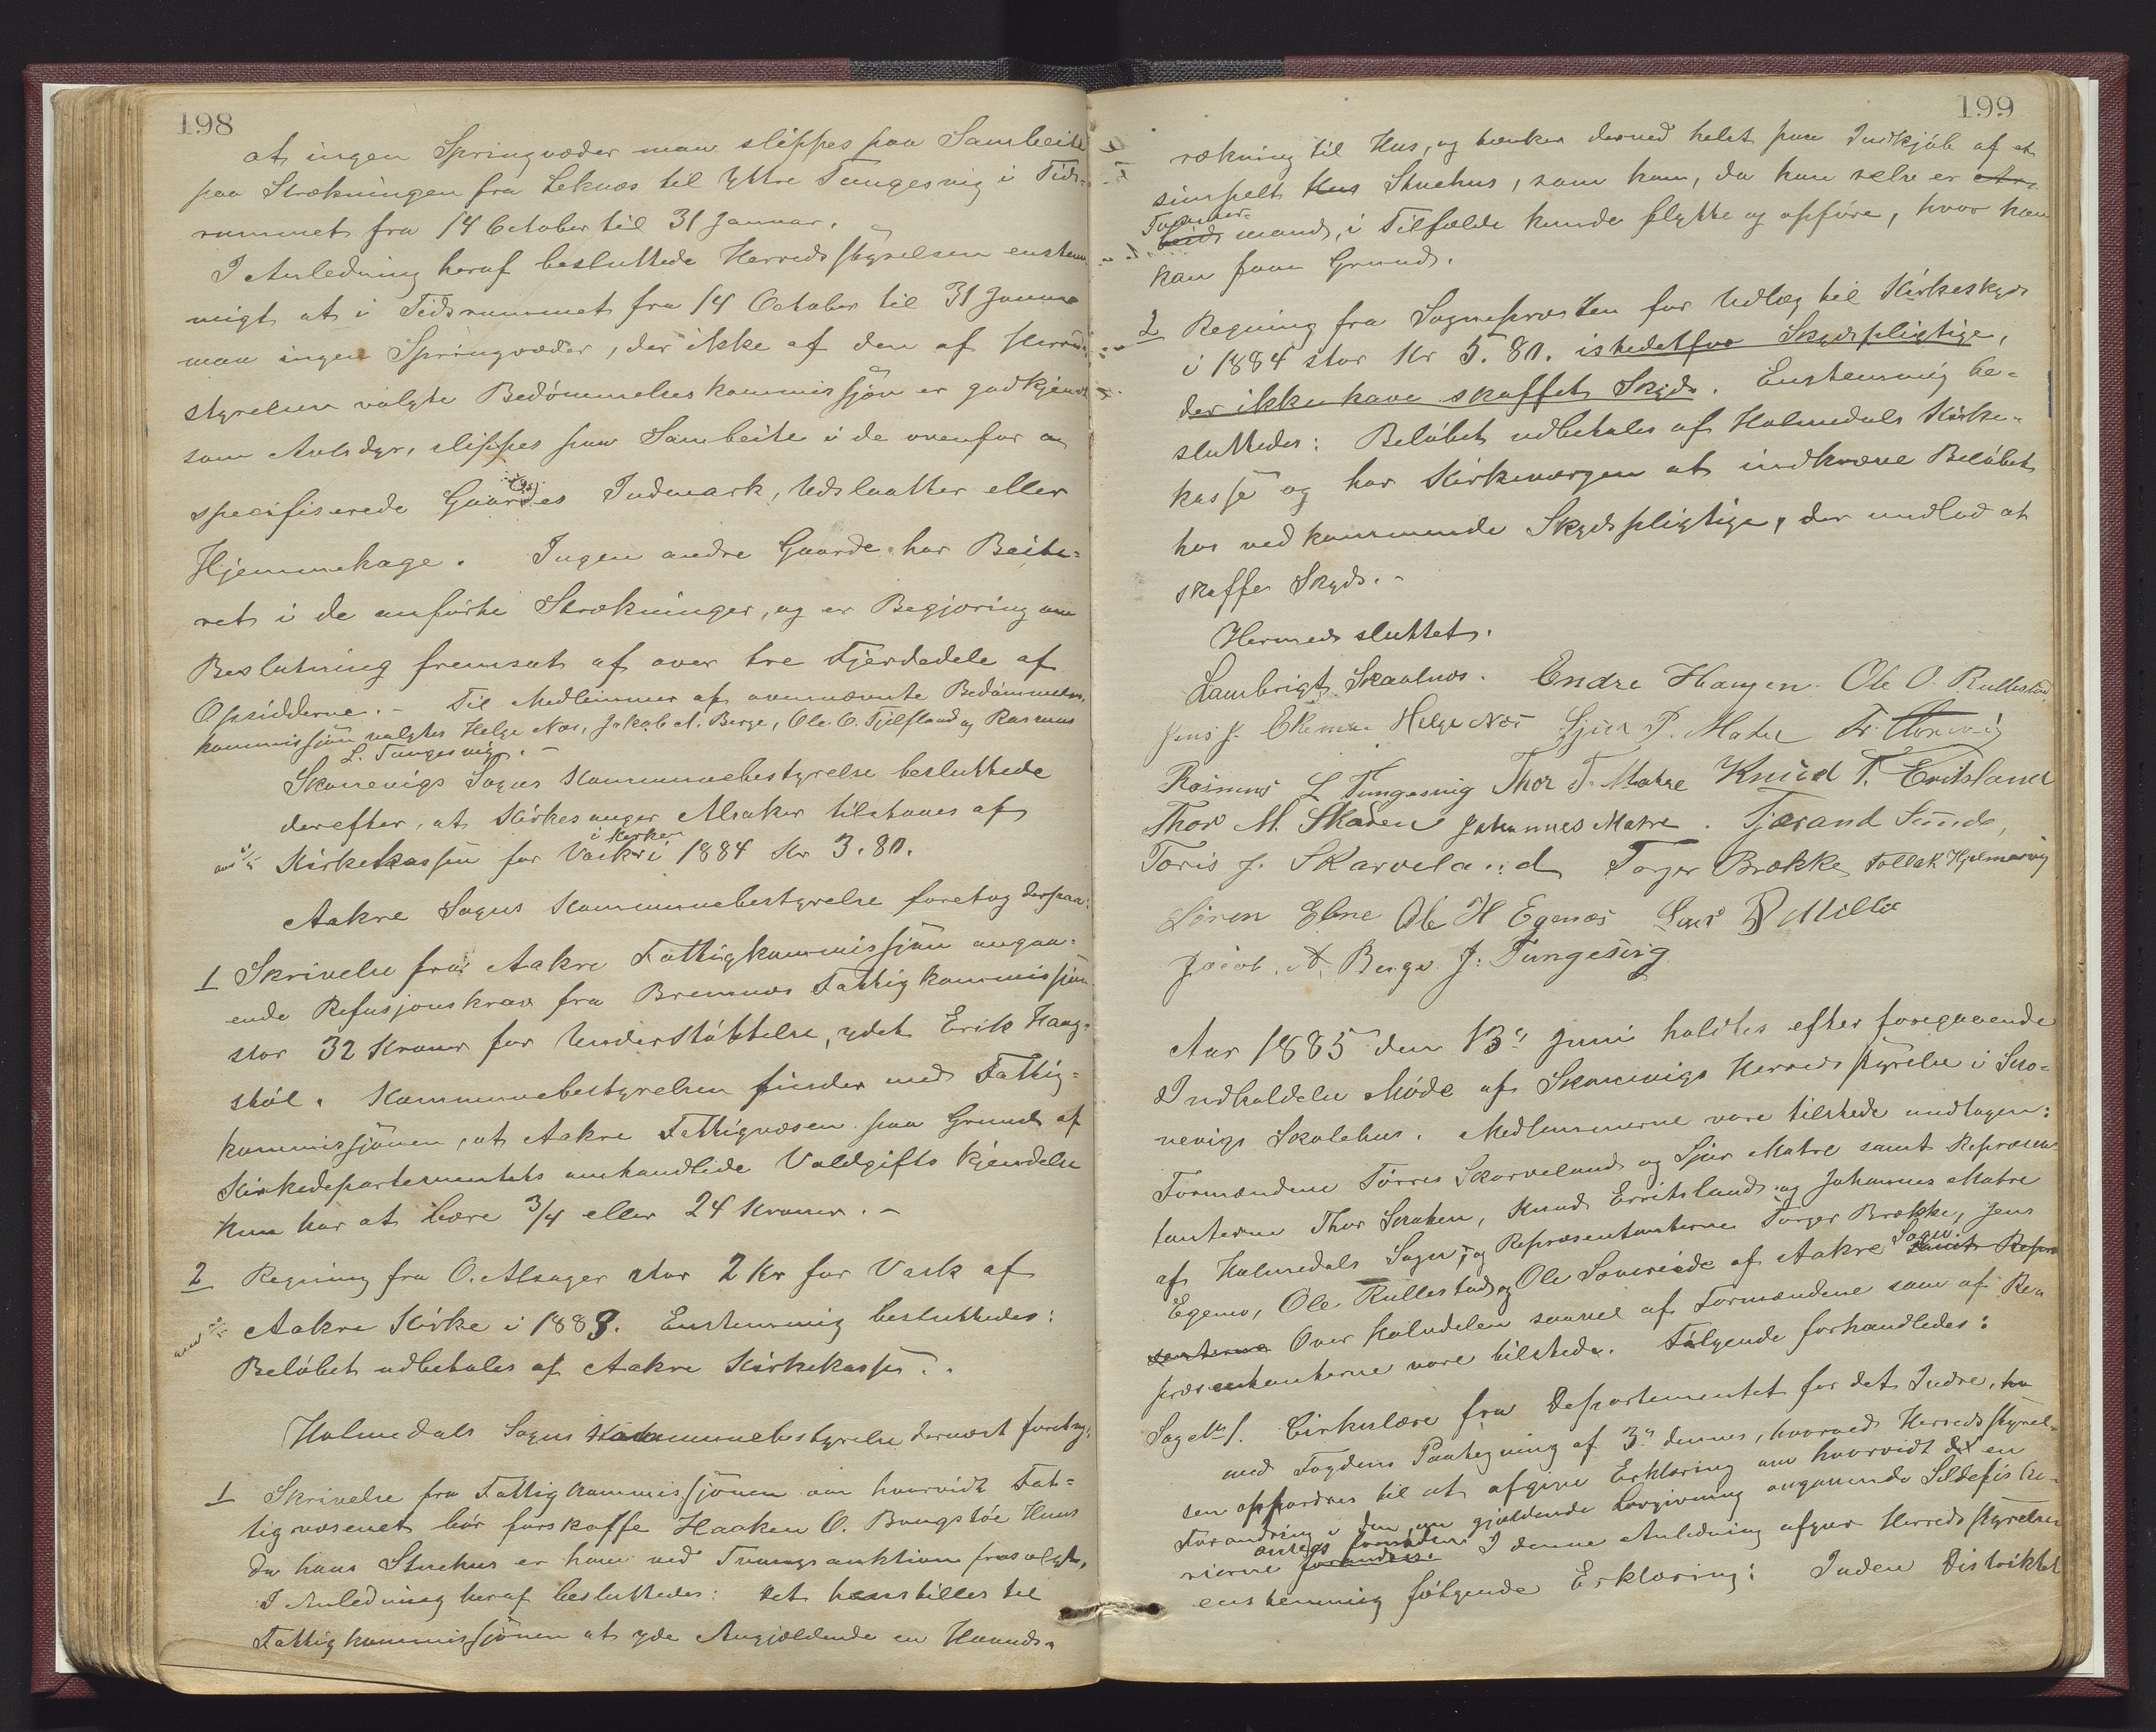 198
at ingen Springvæder maa slippes paa Sambeite
paa Strækningen fra Leknæs til Yttre Tungesvig i Tids-
rummet fra 14 October til 31 Januar.
I Anledning heraf besluttede Herredsstyrelsen enstem-
migt at i Tidsrummet fra 14 October til 31 Januar
maa ingen Springvæder, der ikke af den af Herreds-
styrelsen valgte Bedömmelseskommissjon er godkjendt
som Avlsdyr, slippes paa Sambeite i de ovenfor
specifiserede Gaardes Indmark, Udslaatter eller
Hjemmehage. Ingen andre Gaarde har Beite-
ret i de anförte Strækninger, og er Begjæring om
Beslutning fremsat af over tre Fjerdedele af
Opsidderne. - Til Medlemmer af ovennævnte Bedömmelses-
kommissjon valgtes Helge Næs, Jakob A. Berge, Ole O. Fjelstand og Rasmus
L. Tungesvig. -
Skonevigs Sogns Kommunebestyrelse besluttede
derefter, at Kirkesanger Alsaker tilstaaes af
Kirkekassen for Vask i Kirken i 1884 Kr 3.80.
Aakre Sogns Kommunebestyrelse foretog derpaa:
1 Skrivelse fra Aakre Fattigkommissjon angaa-
ende Refusjonskrav fra Bremnes Fattigkommissjon
stor 32 Kroner for Understöttelse, ydet Erik Haug-
stöl. Kommunebestyrelsen finder med Fattig-
kommissjonen, at Aakre Fattigvæsen paa Grund af
Kirkedepartementets omhandlede Voldgifts Kjendelse
kun har at bære 3/4 eller 24 Kroner. -
2 Regning fra O. Alsager stor 2 Kr for Vask af
Aakre Kirke i 1883. Enstemmig besluttedes:
Belöbet udbetales af Aakre Kirkekasse. -
Holmedals Sogns Kommunebestyrelse dernæst foretog:
1 Skrivelse fra Fattigkommissjonen om hvorvidt Fat-
tigvæsenet bör forskaffe Haaken O. Bongstöe Huus
da hans Stuehus er ham ved Tvangsauktion frasolgt.
I Anledning heraf besluttedes: Det henstilles til
Fattigkommissjonen at yde Angjældende en Haands-
199
rækning til Hus, og tænker derved helst paa Indkjöb af et
simpelt Hus Stuehus, som han, da han selv er Ar-
Tömmer-
beids mand, i Tilfælde kunde flytte og opföre, hvor han
kan faae Grund.
2 Regning fra Sognepræsten for Udlæg til Kirkeskyds
i 1884 stor Kr 5.80. istedetfor Skydspligtige,
der ikke have skaffet Skyds. Enstemmig be-
sluttedes: Belöbet udbetales af Holmedals Kirke-
kasse og har Kirkeværgen at indkræve Belöbet
hos vedkommende Skydspligtige, der undlod at
skaffe Skyds. -
Hermed sluttet.
Lambrigt Skaalnes. Endre Haugen. Ole O. Rullestad
Jens J. Helge Næs Sjur P. Matre
Rasmus L Tungesvig Thor T. Matre Knud T. Eritsland
Thor M. Skaden Johannes Matre. Tjærand Sunde,
Toris J. Skarveland Torger Brække Tollak Hjelmervig
Sören Ebne Ole H Egenæs Lars Milje
Jacob. A. Berge J. Tungesvig
Aar 1885 den 13de Juni holdtes efter foregaaende
Indkaldelse Möde af Skonevigs Herredsstyrelse i Sko-
nevigs Skolehus. Medlemmerne vare tilstede undtagen:
Formændene Törres Skarveland og Sjur Matre samt Repræsen-
tanterne Thor Skaden, Knud Eritsland og Johannes Matre
af Holmedals Sogn, og Repræsentanterne Torger Brække, Jens
Egenæs, Ole Rullestad og Ole Sövereide af Aakre Sogn. samt Repræ
senterne Over Halvdelen saavel af Formændene som af Re-
præsentanterne vare tilstede. Fölgende forhandledes:
Sag No 1. Cirkulære fra Departementet for det Indre,
med Fogdens Paategning af 3de dennes, hvorved Herredsstyrel-
sen opfordres til at afgive Erklæring om hvorvidt en
Forandring i den nu gjældende Lovgivning angaaende Sildefiske-
rierne ansees fornöden forandres. I denne Anledning afgav Herredsstyrelsen
enstemmig fölgende Erklæring: Inden Distriktet